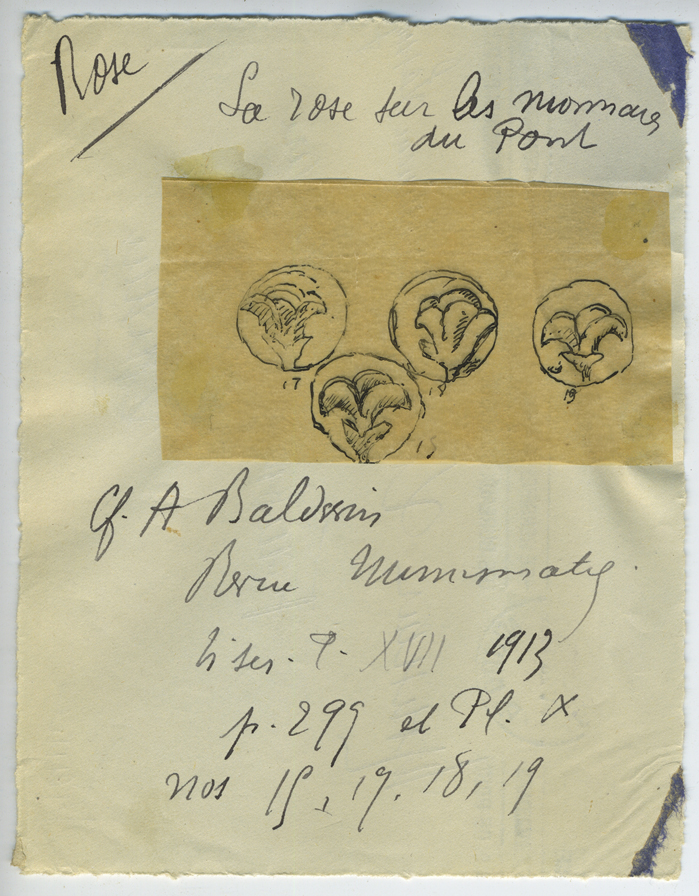 Rose
La rose sur les monnaies
du Pont
17
18
19
15
Cf. A Baldwin
Revue Numismatiq.
ser. T. XVII 1913
p. 299 et Pl. X
nos 15, 17, 18, 19